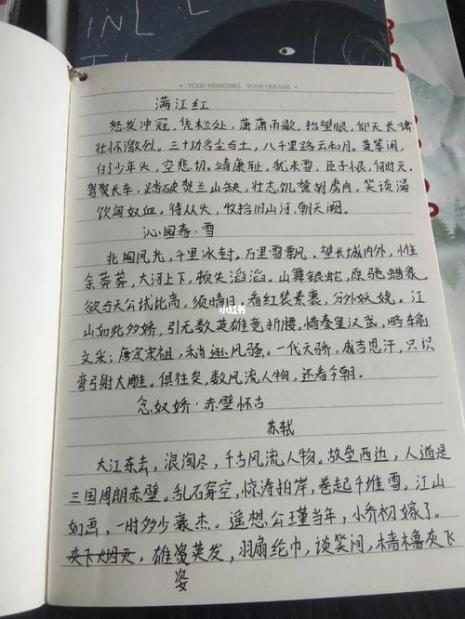 INL
YOUR MEMORIES YOUR DREAMS
满江红
怒发冲冠，凭栏处，萧萧雨歇，抬望眼，仰天长啸
壮怀激烈。三十功名尘与土，八千里路云和月。莫等闲，
白了少年头，空悲切。靖康耻，犹未雪，臣子恨，何时灭。
驾长车，踏破贺兰山缺，壮志饥餐胡虏肉，笑谈渴
饮匈奴血。待从头，收拾旧山河，朝天阙。
沁园春·雪
北国风光，千里冰封。万里雪飘。望长城内外，惟
余莽莽，大河上下，顿失滔滔。山舞银蛇，原驰蜡象，
欲与天公找比高，须晴日，看红装素裹，分外妖娆。江
山如此多娇，引无数英雄竞折腰，惜秦皇汉武，略输
文采；唐宗宋祖，稍逊风骚。一代天骄，成吉思汗，只识
弯弓射大雕。俱往矣，数风流人物，还看今朝。
小红书
念奴娇·赤壁怀古
苏轼
大江东去，浪淘尽，千古风流人物。故垒西边，人道是
三国周朗赤壁。乱石穿空，惊涛拍岸，卷起千堆雪。江山
如画，一时多少豪杰。遥想公瑾当年，小乔初嫁了。
雄姿英发，羽扇纶巾，谈笑间，樯橹灰飞
姿